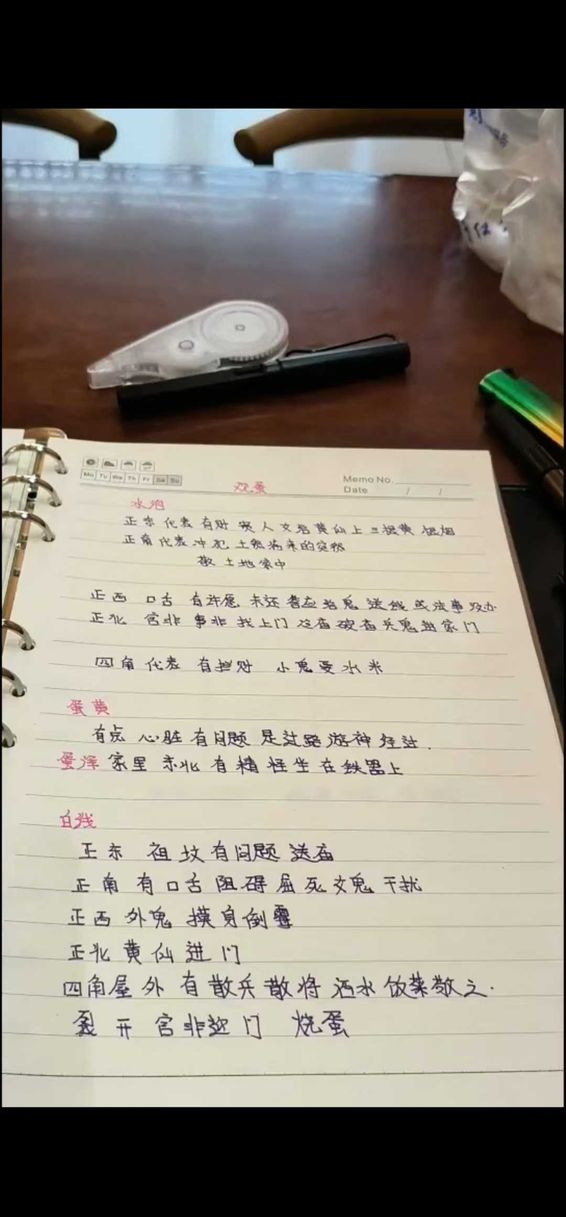 Mo Tu We Th Fr Sa Su
Memo No.
Date / /
观蛋
水泡
正东 代表 有财 家人 女鬼 黄仙上
正南 代表 冲犯 土煞 的
敬 土地 家中
正西 口舌 有许愿 未还 鬼 送钱 或 法事
正北 官非 事非 找上门 兵鬼 进 家门
四角 代表 有挡财 小鬼 要 水米
蛋黄
有点 心脏 有问题 是过路 游神 经过.
蛋浑 家里 东北 有 精 怪坐 在 铁器上
白线
正东 祖坟 有问题 送
正南 有口舌 阻碍 屈死 女鬼 干扰
正西 外鬼 摸身 倒霉
正北 黄仙 进门
四角 屋外 有 散兵 散将 洒水 饭菜 敬之.
裂开 官非 进门 烧蛋